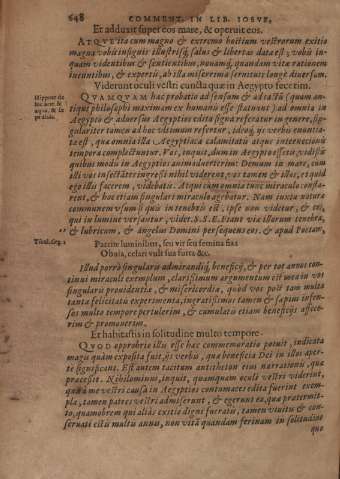 648 COMMENT. IN LIB. IOSVE,
Et adduxit super eos mare, & operuit eos.
ATQVE ita cum magno & extremo hostium vestrorum exitio
magna vobis insignis illustrisq́; salus & libertas data est; vobis in-
quam videntibus & sentientibus, nouamq́; quandam vitæ rationem
ineuntibus, & expertis, ab illa miserrima seruitute longe diuersam.
Viderunt oculi vestri cuncta quæ in Aegypto fecerim.
QVAMQVAM hac probatio ad sensum & (quam an-
tiqui philosophi maximam ex humano esse statuunt) ad omnia in
Aegypto & aduersus Aegyptios edita signa referatur in genere, sin-
gulariter tamen ad hoc vltimum refertur, ideoq́; ijs verbis enuntia-
ta est, quæ omnia illa Aegyptiacæ calamitatis atque internecionis
tempora complectuntur. Vos, inquit, dum in Aegypto essetis, vidistis
quibus modis in Aegyptios animaduerterim: Demum in mare, cum
illi vos insectati ingressi nihil viderent, vos tamen & illos, et quid
ego illis facerem, videbatis. Atqui cum omnia tunc miraculo consta-
rent, & hoc etiam singulari miraculo agebatur. Nam iuxta naturæ
communem vsum is quis in tenebris est, ipse non videtur, & ei,
qui in lumine versantur, videt. S.S.E. Fiant viæ illorum tenebræ,
& lubricum, & angelus Domini persequens eos, & apud Poetam,
Parcite luminibus, seu vir seu femina fias
Obuia, celari vult sua furta &c.
Illud porrò singularis admirandiq́; beneficij, & per tot annos con-
tinui miraculi exemplum, clarissimum argumentum est mea in vos
singularis prouidentiæ, & misericordiæ, quòd vos post tam multa
tantæ felicitatis experimenta, ingratissimus tamen & sapius infen-
sos multo tempore pertulerim, & cumulatis etiam beneficijs affece-
rim & promouerim.
Et habitastis in solitudine multo tempore.
QVOD approbrio illis esse hac commemoratio potuit, indicata
magis quàm exposita fuit, ijs verbis, quæ beneficia Dei in illos aper-
tè significant. Est autem tacitum antitheton eius narrationi, quæ
præcessit. Nihilominus, inquit, quamquam oculi vestri viderint,
quæ à me vestri caussa in Aegyptios contumaces edita fuerint exem-
pla, tamen patres vestri admiserunt, & egerunt ea, quæ prætermit-
to, quamobrem qui alias exitio digni fueratis, tamen viuitis & con-
seruati estis multis annis, non vitâ quadam ferinam in solitudine
quæ